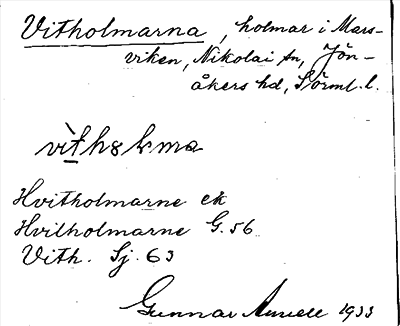 Vitholmarna, holmar i Mars-
viken, Nikolai sn, Jön-
åkers hd, Sörml. l.
Hvitholmarne ek
Hvitholmarne G. 56
Vith. Sj. 63
Gunnar 1933